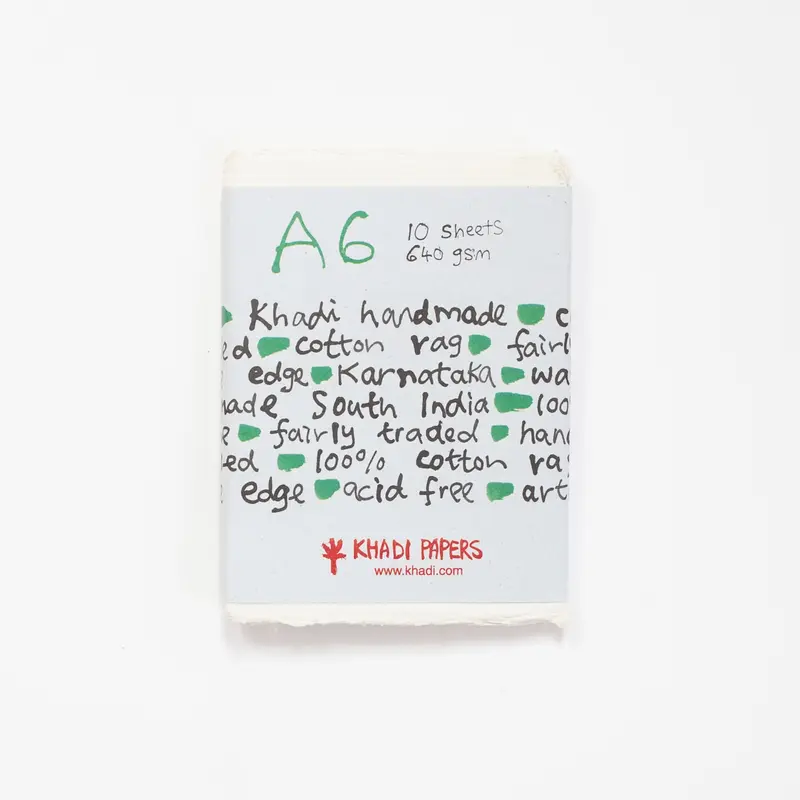 A6
10 sheets
640 gsm
Khadi handmade c
ed cotton rag fairl
edge Karnataka wa
made South India 100
e fairly traded hand
ed 100% cotton rag
edge acid free art
KHADI PAPERS
www.khadi.com